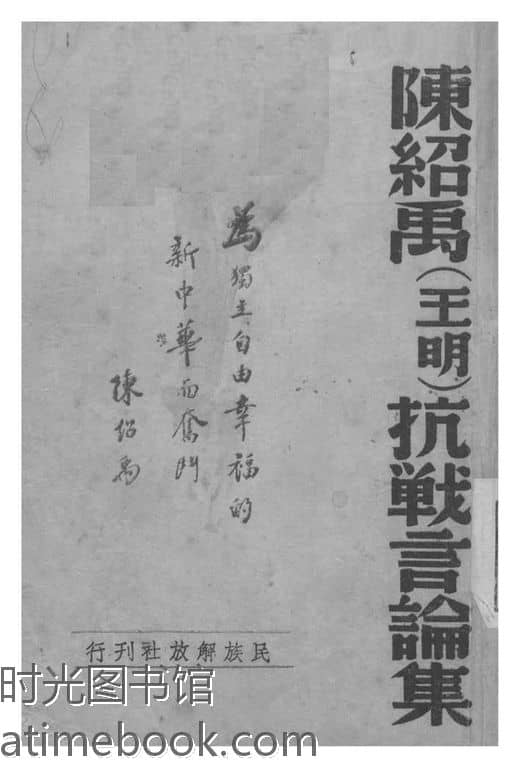 陳紹禹(王明)抗戦言論集
為獨立自由幸福的
新中華而奮鬥
陳紹禹
民族解放社刊行
时光图书馆
atimebook.com